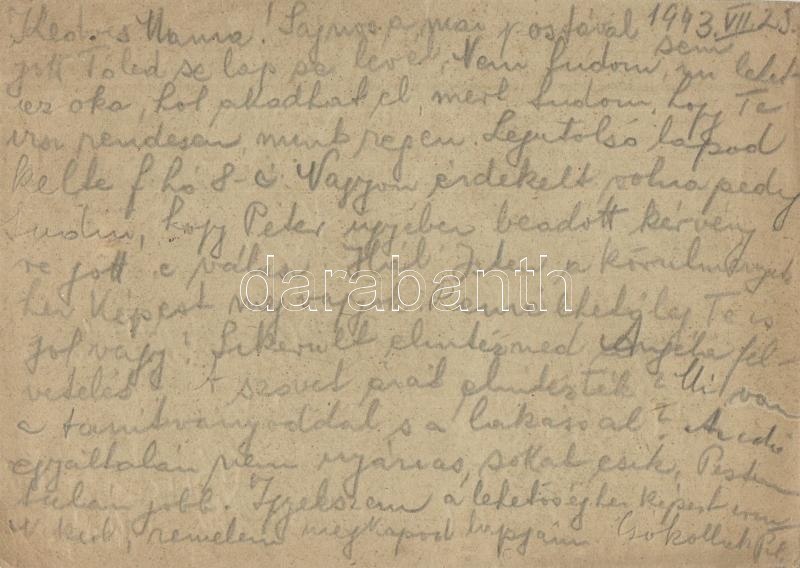 Kedves Mama! Sajnos a mai postával 1943.VII.23.
sem
jött Tőled se lap se levél. Nem tudom, mi lehet
ez oka, hol akadhat el, mert tudom, hogy Te
irsz rendesen, mint régen. Legutolsó lapod
kelte f. hó 8-a. Nagyon érdekelt volna pedig
tudni, hogy Péter ügyében beadott kérvény
re jött e válasz. Hál' Isten, a körülmények
hez képest vagyok. Remélhetőleg Te is
jól vagy! Sikerült elintézned Angéla fel-
vételés szövet elintézték? Mi van
a tanitványoddal s a lakással? Az idő
egyáltalán nem nyárias, sokat esik, Pesten
talán jobb. Igyekszem a lehetőséghez képest
remélem megkapod lapjaim. Csókollak
darabanth